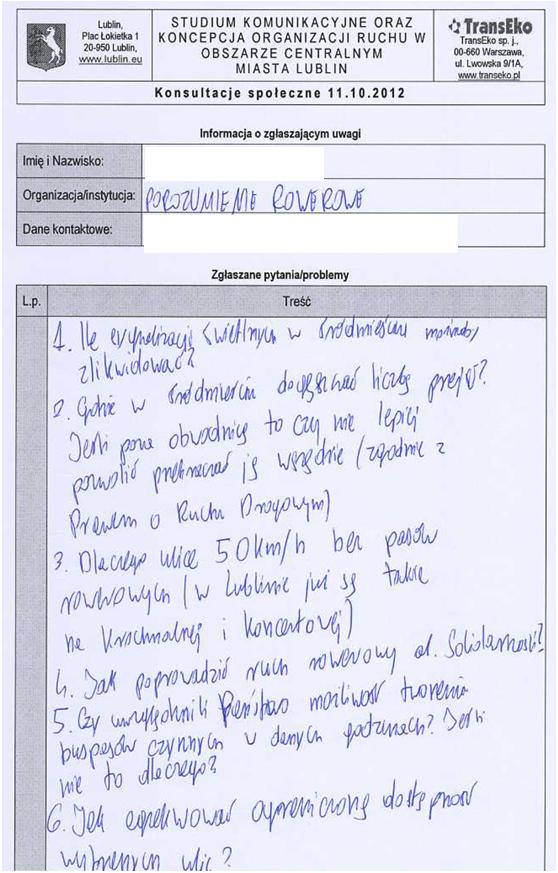 Lublin,
Plac Łokietka 1
20-950 Lublin,
www.lublin.eu
STUDIUM KOMUNIKACYJNE ORAZ
KONCEPCJA ORGANIZACJI RUCHU W
OBSZARZE CENTRALNYM
MIASTA LUBLIN
TransEko
TransEko sp. j.,
00-660 Warszawa,
ul. Lwowska 9/1A,
www.transeko.pl
Konsultacje społeczne 11.10.2012
Informacja o zgłaszającym uwagi
Imię i Nazwisko:
Organizacja/instytucja: POROZUMIENIE ROWEROWE
Dane kontaktowe:
Zgłaszane pytania/problemy
L.p. Treść
1. Ile sygnalizacji świetlnych w śródmieściu można by
zlikwidować?
2. Gdzie w śródmieściu dogęszczać liczbę przejść?
Jeśli poza obwodnicą to czy nie lepiej
pozwolić przekraczać ją wszędzie (zgodnie z
Prawem o Ruchu Drogowym)
3. Dlaczego ulice 50 km/h bez pasów
rowerowych (w Lublinie już są takie
na Krochmalnej i Koncertowej)
4. Jak poprowadzić ruch rowerowy al. Solidarności?
5. Czy uwzględnili Państwo możliwość tworzenia
buspasów czynnych w danych godzinach? Jeśli
nie to dlaczego?
6. Jak egzekwować ograniczoną dostępność
wybranych ulic?